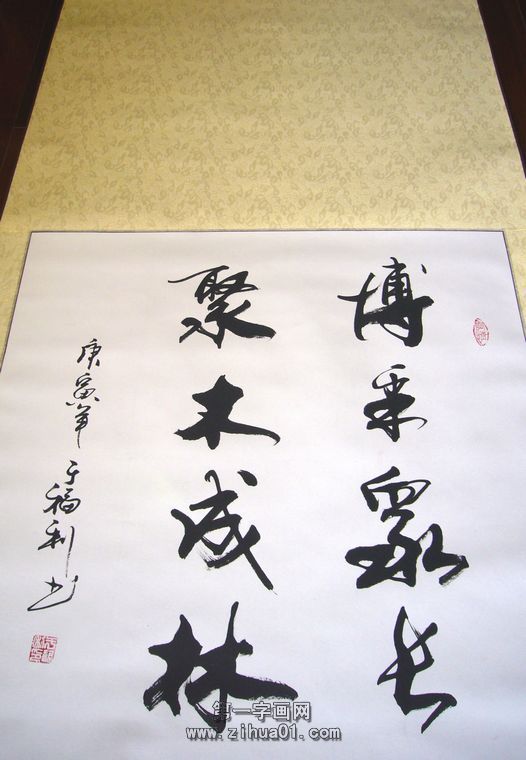 博采众长
聚木成林
庚寅年
于福利书
第一字画网
www.zihua01.com